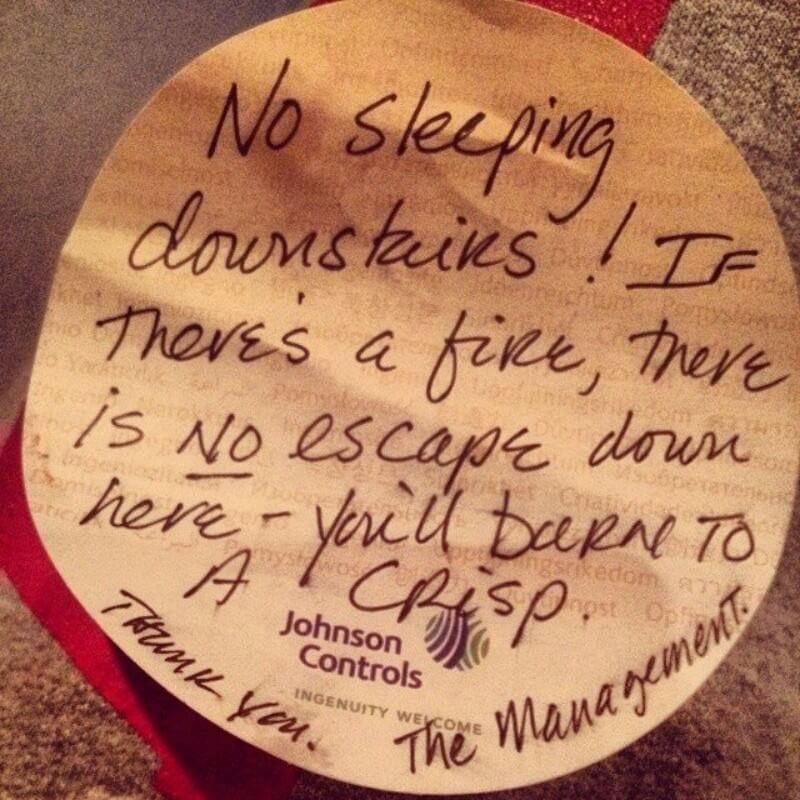 No sleeping
downstairs! IF
there's a fire, there
is NO escape down
here - you'll burn TO
A CRisp.
Johnson
Controls
INGENUITY WELCOME
Thank you.
The Management.